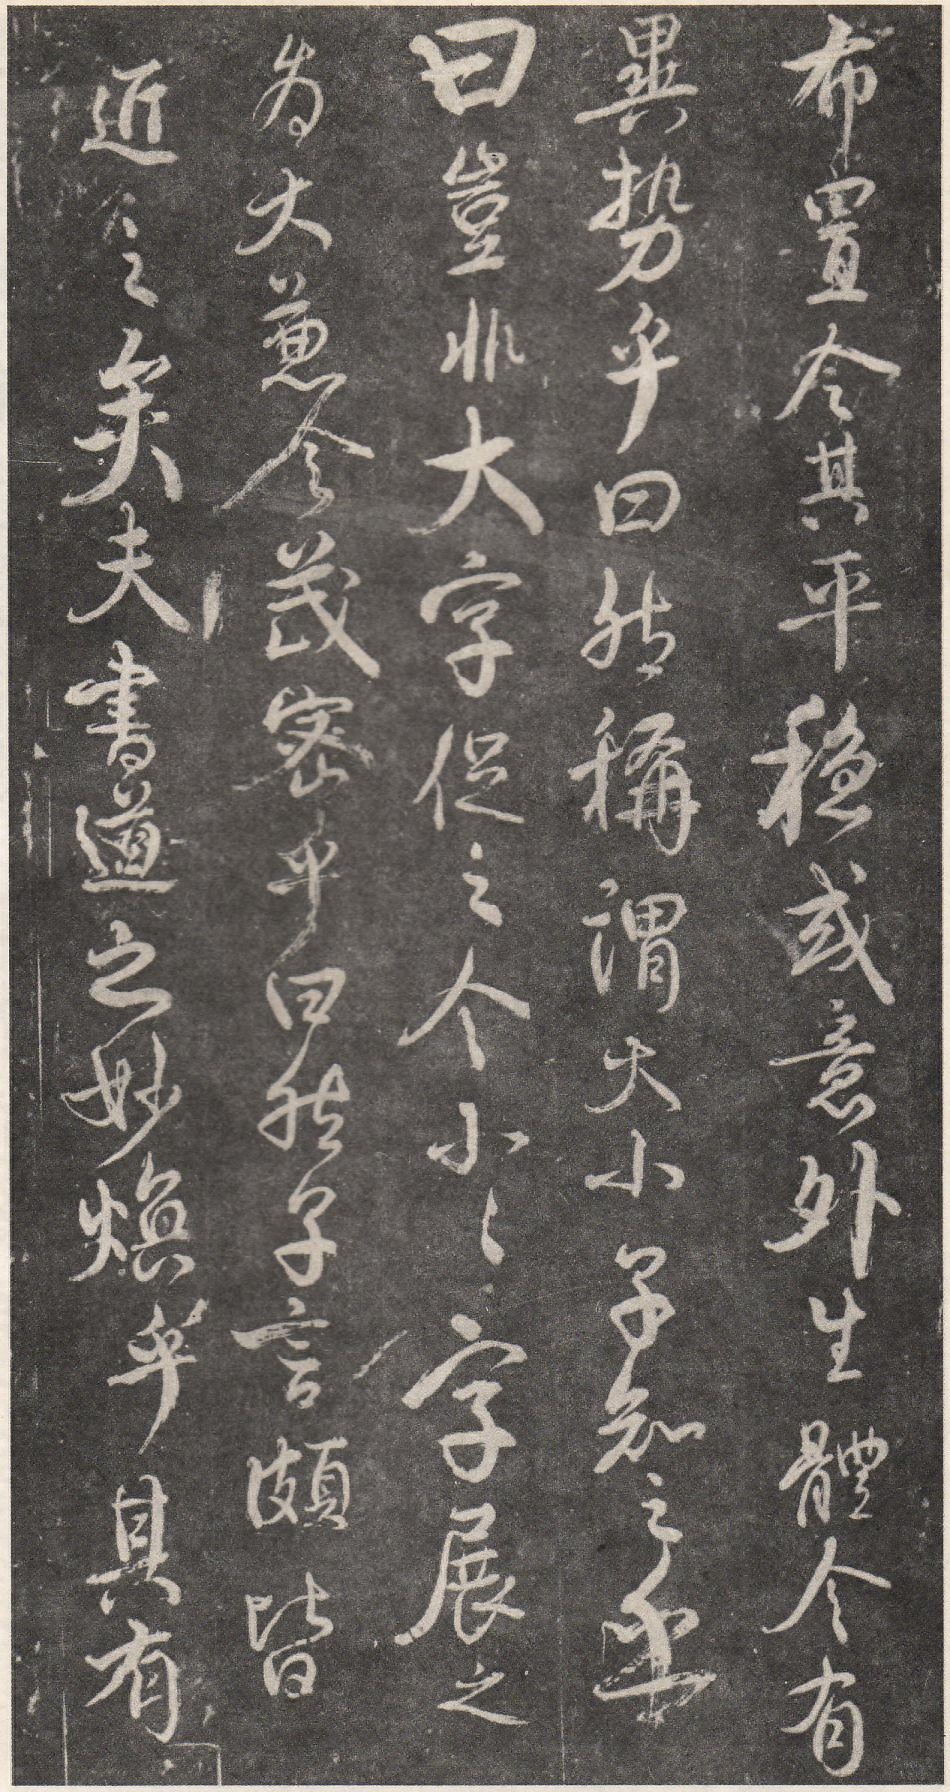 布置令其平穩或意外生體令有
異勢乎曰然稱謂大小子知之乎
曰豈非大字促之令小小字展之
為大兼令茂密乎曰然子言頗皆
近之矣夫書道之妙煥乎其有